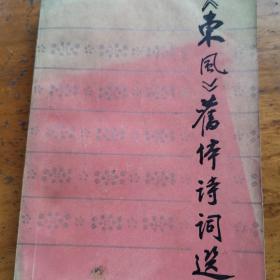 《東風》舊体诗词選